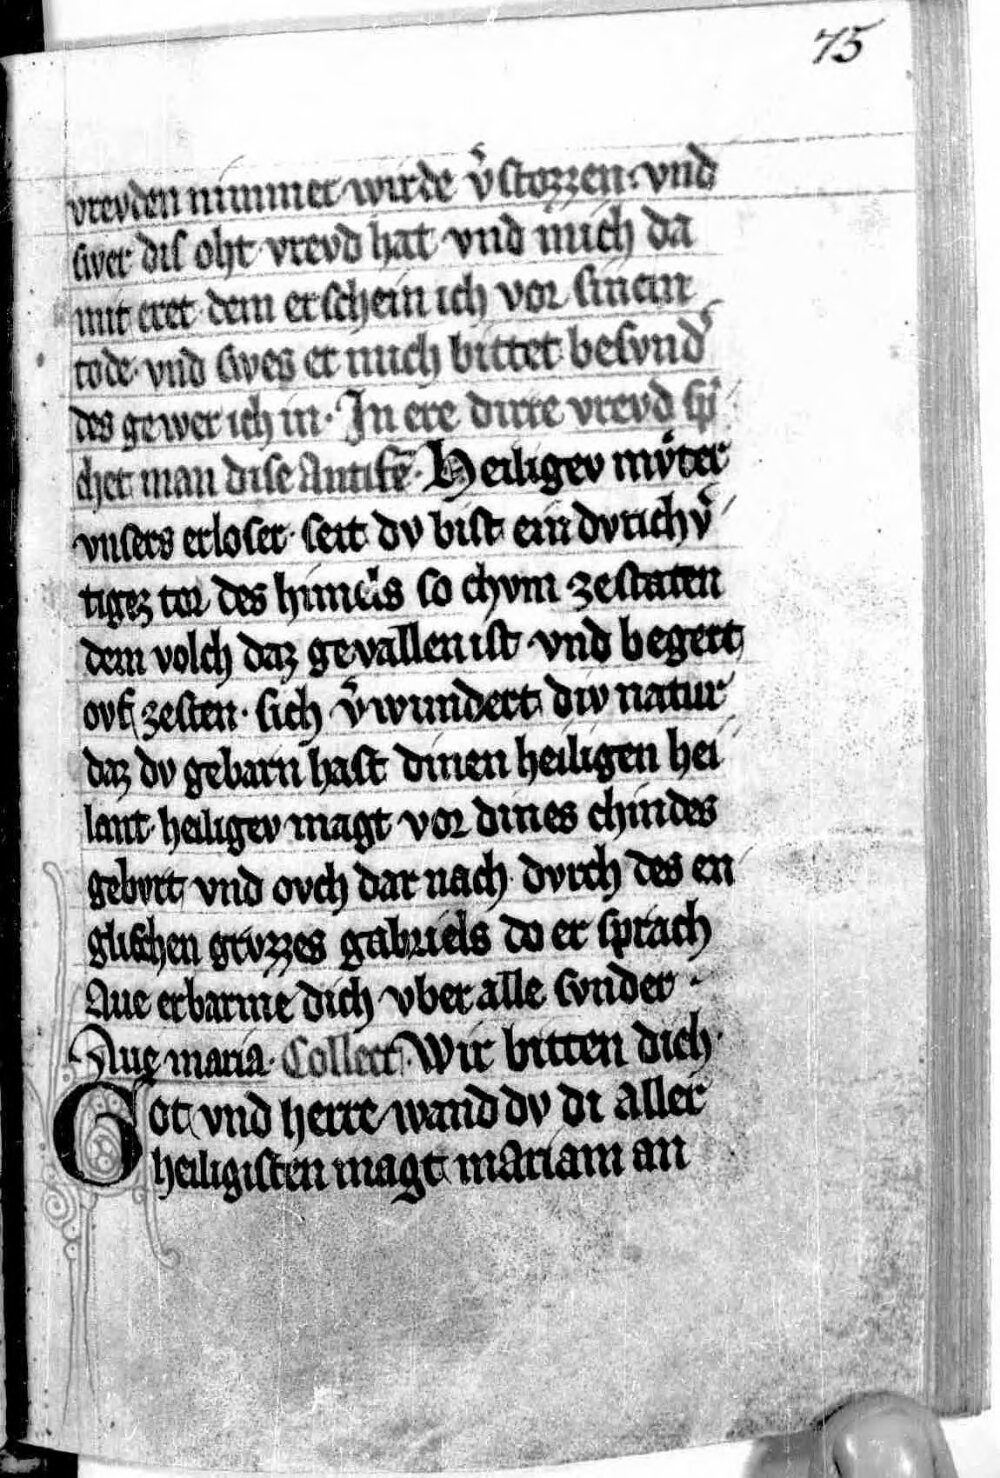 75
vrevden nimmer wirde v̾stozzen. vnd
swer dis oht vrevd hat vnd mich da
mit eret dem erschein ich vor sinem
tode. vnd swes er mich bittet besvnd̾
des gewer ich in. In ere dirre vrevd sp̾
chet man dise Antifē. Heiligev mvͦter
vnsers erloser. seit dv bist ein dvrichv̾
tigez tor des himels so chvm zestaten
dem volch daz gevallen ist. vnd begert
ovf zesten. sich v̾wundert div natur
daz dv gebarn hast dinen heiligen hei
lant. heiligev magt vor dines chindes
gebvrt vnd ovch dar nach. dvrch des en
glischen grvzzes gabriels do er sprach
Aue erbarme dich vber alle svnder.
Aue maria. Collect. Wir bitten dich.
Got vnd herre wand dv di aller
heiligisten magt mariam an